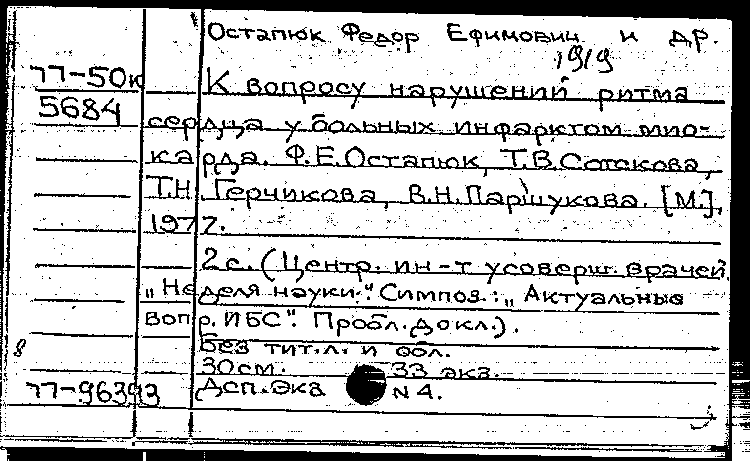 Остапюк Федор Ефимович и др.
1919
77-50к
5684
К вопросу нарушений ритма
сердца у больных инфарктом мио-
карда. Ф.Е.Остапюк, Т.В.Сотскова,
Т.Н.Герчикова, В.Н.Паршукова. [М.],
1977.
2с. (Центр. ин-т усоверш. врачей.
„Неделя науки". Симпоз.: „Актуальные
вопр. ИБС". Пробл. докл.).
Без тит.л. и обл.
8
30см. 33 экз.
77-96393
Дсп. Экз N 4.